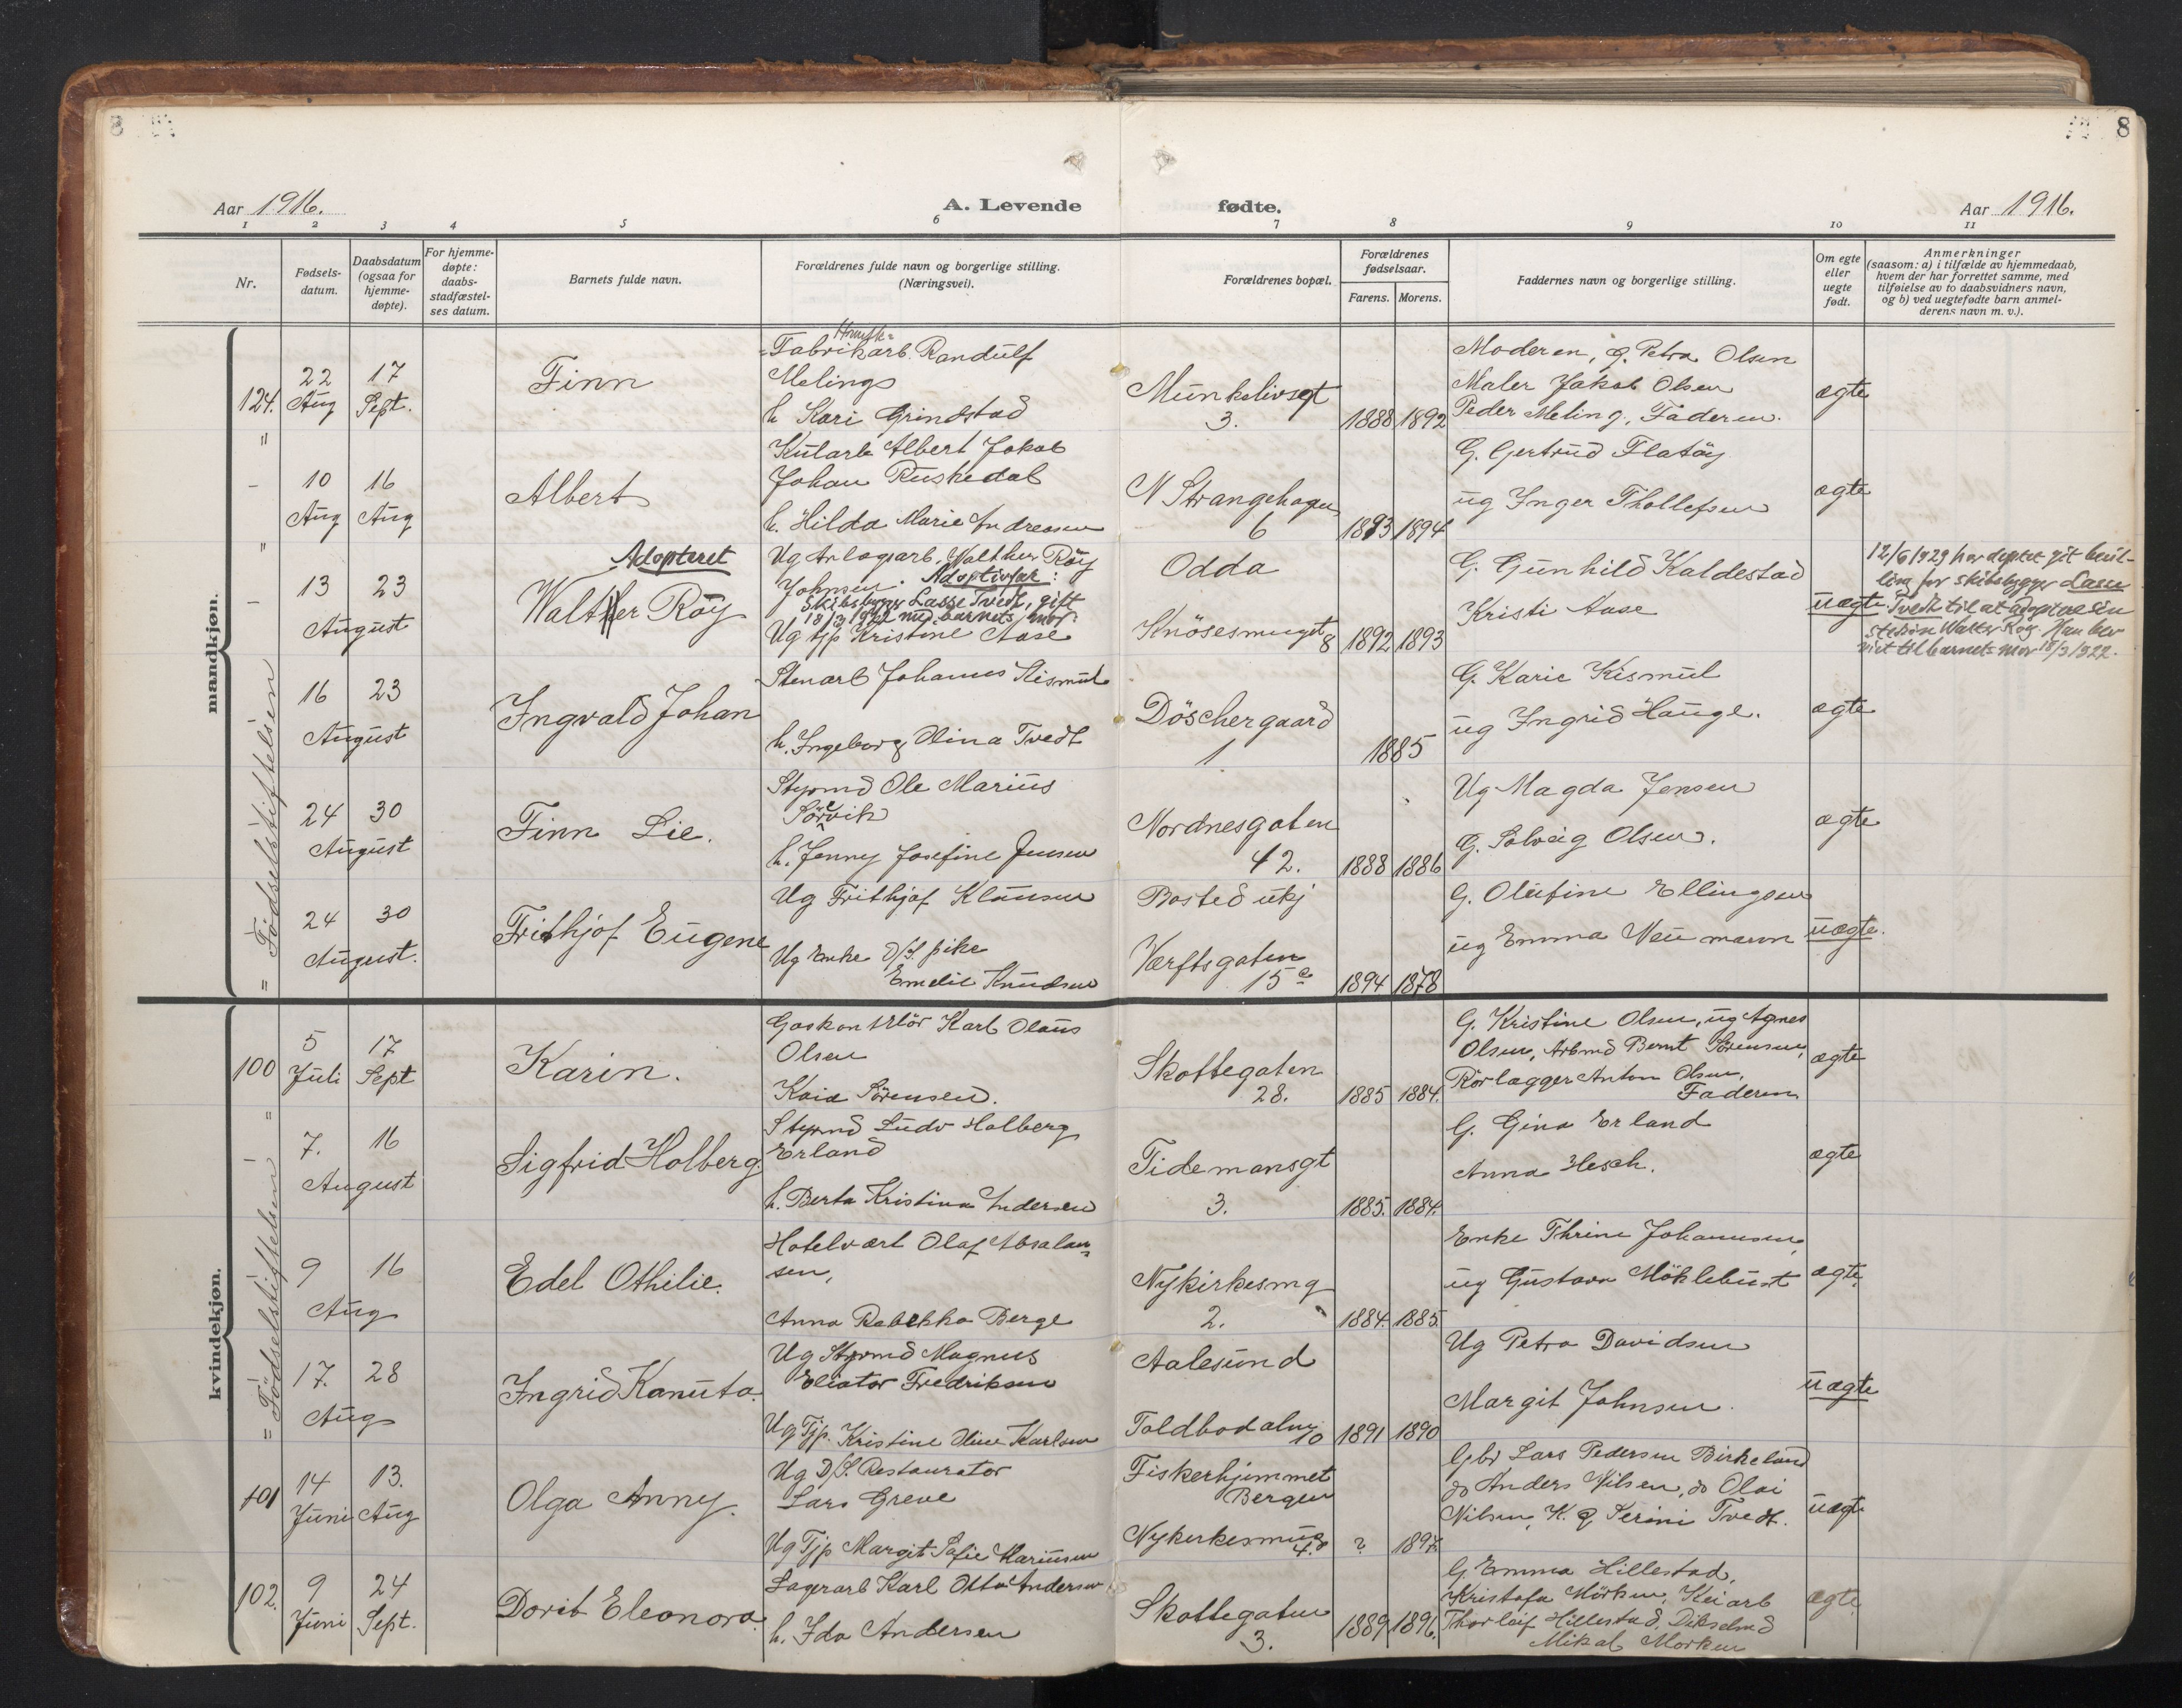 8
8
Aar 1916.
A. Levende
fødte.
Aar 1916.
1 2 3 4 5 6 7 8 9 10 11
Nr.
Fødsels-
datum.
Daabsdatum
(ogsaa for
hjemme-
døpte).
For hjemme-
døpte:
daabs-
stadfæstel-
ses datum.
Barnets fulde navn.
Forældrenes fulde navn og borgerlige stilling.
(Næringsvei).
Forældrenes bopæl.
Forældrenes
fødselsaar.
Farens. Morens.
Faddernes navn og borgerlige stilling.
Om egte
eller
uegte
født.
Anmerkninger
(saasom: a) i tilfælde av hjemmedaab,
hvem der har forrettet samme, med
tilføielse av to daabsvidners navn,
og b) ved uegtefødte barn anmel-
derens navn m. v.).
mandkjøn.
= Fødselsstiftelsen =
124.
22
Aug
17
Sept.
Finn
Fabrikarb. Randulf
Meling
h Kari Grindstad
Munkelivsgt
3.
1888 1892
Moderen, g. Petra Olsen
Maler Jakob Olsen
Peder Meling, Faderen.
ægte
10
Aug
16
Aug
Albert
Kularb Albert Jakob
Johan Ruskedal
h. Hilda Marie Andreasen
N Strangehagen
6
1893 1894
G. Gertrud Flatøy
ug Inger Thollefsen
ægte
13 23
August
Adopteret
Walther Røy
Ug Anlægsarb. Walther Røy
Johnsen. Adoptivfar:
Skibsbygger Lasse Tvedt, gift
18/3 1922 med barnets mor:
Ug tjp Kristine Aase
Odda
Knøsesmuget 8
1892 1893
G. Gunhild Kaldestad
Kristi Aase
uægte
12/6 1929 har deptet git bevil-
ling for skibsbygger Lasse
Tvedt til at adoptere sin
stedsøn Walter Røy. Han blev
viet til barnets mor 18/3 1922.
16 23
August
Ingvald Johan
Stenarb Johannes Kismul
h. Ingeborg Olina Tvedt
Döschergaard
1
1885
G. Karie Kismul
ug Ingrid Hauge.
ægte
24 30
August
Finn Lie.
Styrmd Ole Marius
Sørvik
h. Jenny Josefine Jensen
Nordnesgaten
42.
1888 1886
Ug Magda Jensen
G. Solveig Olsen.
ægte
24 30
August.
Frithjof Eugene
Ug Frithjof Klausen
Ug Enke D/S. pike
Emelie Knudsen
Bosted ukj
Værftsgaten
15 c
1894 1878
G. Olufine Ellingsen
ug Emma Neumann
uægte.
kvindekjøn.
= Fødselsstiftelsen =
100
5
Juli
17
Sept
Karin.
Gaskontrlör Karl Olaus
Olsen
Kaia Sørensen.
Skottegaten
28.
1885 1884.
G. Kristine Olsen, ug Agnes
Olsen, Arbmd Bernt Sørensen,
Rørlægger Anton Olsen,
Faderen
ægte
7. 16
August
Sigfrid Holberg.
Styrmd Ludv Holberg
Erland
h. Berta Kristina Andersen
Tidemansgt
3.
1885. 1884.
G. Gina Erland
Anna Hesch.
ægte
9 16
Aug
Edel Othilie.
Hotelvært Olaf Absalon-
sen,
Anna Rebekka Berge
Nykirkesmg
2.
1884. 1885.
Enke Thrine Johannesen,
ug Gustava Møklebust
ægte.
17. 28
Aug
Ingrid Kanuta.
Ug Styrmd Magnus
Fredriksen
Ug Tjp. Kristine Oline Karlsen
Aalesund
Toldbodalm 10
1891 1890
Ug Petra Davidsen
Margit Johnsen.
uægte
101
14
Juni
13.
Aug
Olga Anny.
Ug D/S. Restauratør
Lars Greve
Ug Tjp Margit Sofie Mariusen
Fiskerhjemmet
Bergen
Nykerkesmug
4.
? 1897.
Gbr Lars Pedersen Birkeland
do Anders Nilsen, do Olai
Nilsen, K. Serine Tvedt.
uægte
102.
9
Juni
24
Sept.
Dorit Eleonora.
Lagerarb Karl Otto Andersen
h. Ida Andersen
Skottegaten
3.
1889 1896.
G. Emma Hillestad,
Kristofa Mörken, Keiarb
Thorleif Hillestad, Dikselmd
Mikal Morken
ægte.